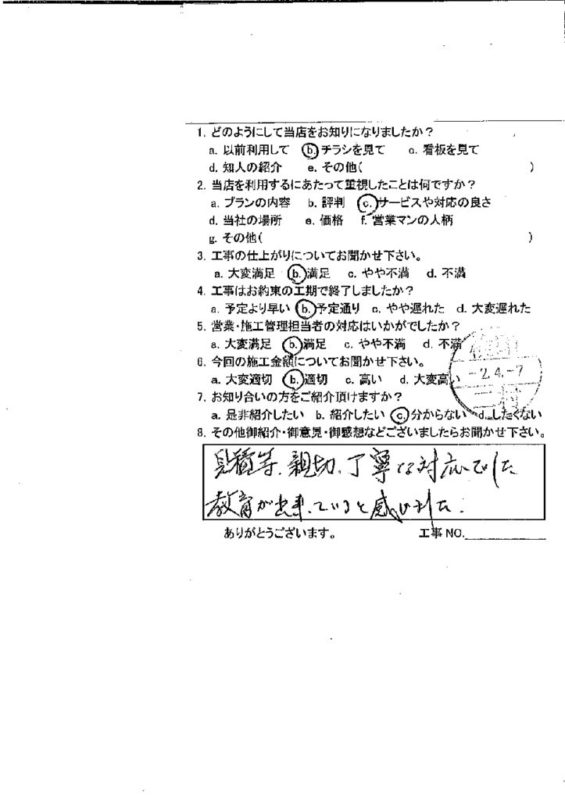 1. どのようにして当店をお知りになりましたか?
a. 以前利用して b. チラシを見て c. 看板を見て
d. 知人の紹介 e. その他( )
2. 当店を利用するにあたって重視したことは何ですか?
a. プランの内容 b. 評判 c. サービスや対応の良さ
d. 当社の場所 e. 価格 f. 営業マンの人柄
g. その他( )
3. 工事の仕上がりについてお聞かせ下さい。
a. 大変満足 b. 満足 c. やや不満 d. 不満
4. 工事はお約束の工期で終了しましたか?
a. 予定より早い b. 予定通り c. やや遅れた d. 大変遅れた
5. 営業・施工管理担当者の対応はいかがでしたか?
a. 大変満足 b. 満足 c. やや不満 d. 不満
6. 今回の施工金額についてお聞かせ下さい。
-2.4.-7
a. 大変適切 b. 適切 c. 高い d. 大変高い
7. お知り合いの方をご紹介頂けますか?
a. 是非紹介したい b. 紹介したい c. 分からない d. したくない
8. その他御紹介・御意見・御感想などございましたらお聞かせ下さい。
見積等、親切、丁寧な対応でした
教育が出来ていると感じました。
ありがとうございます。 工事 NO.